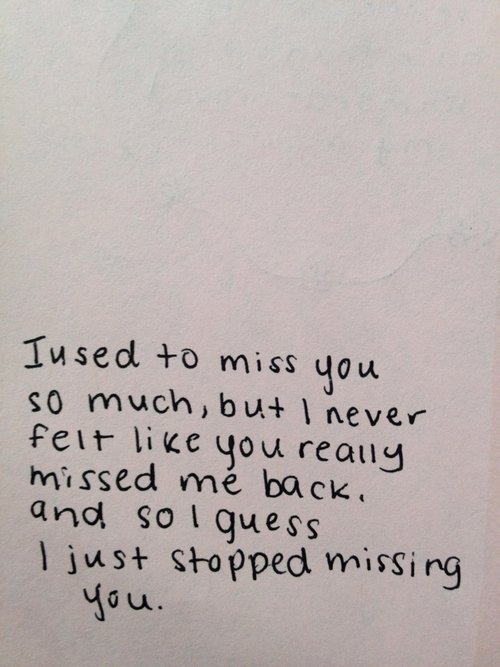 I used to miss you
so much, but I never
felt like you really
missed me back.
and so I guess
I just stopped missing
you.